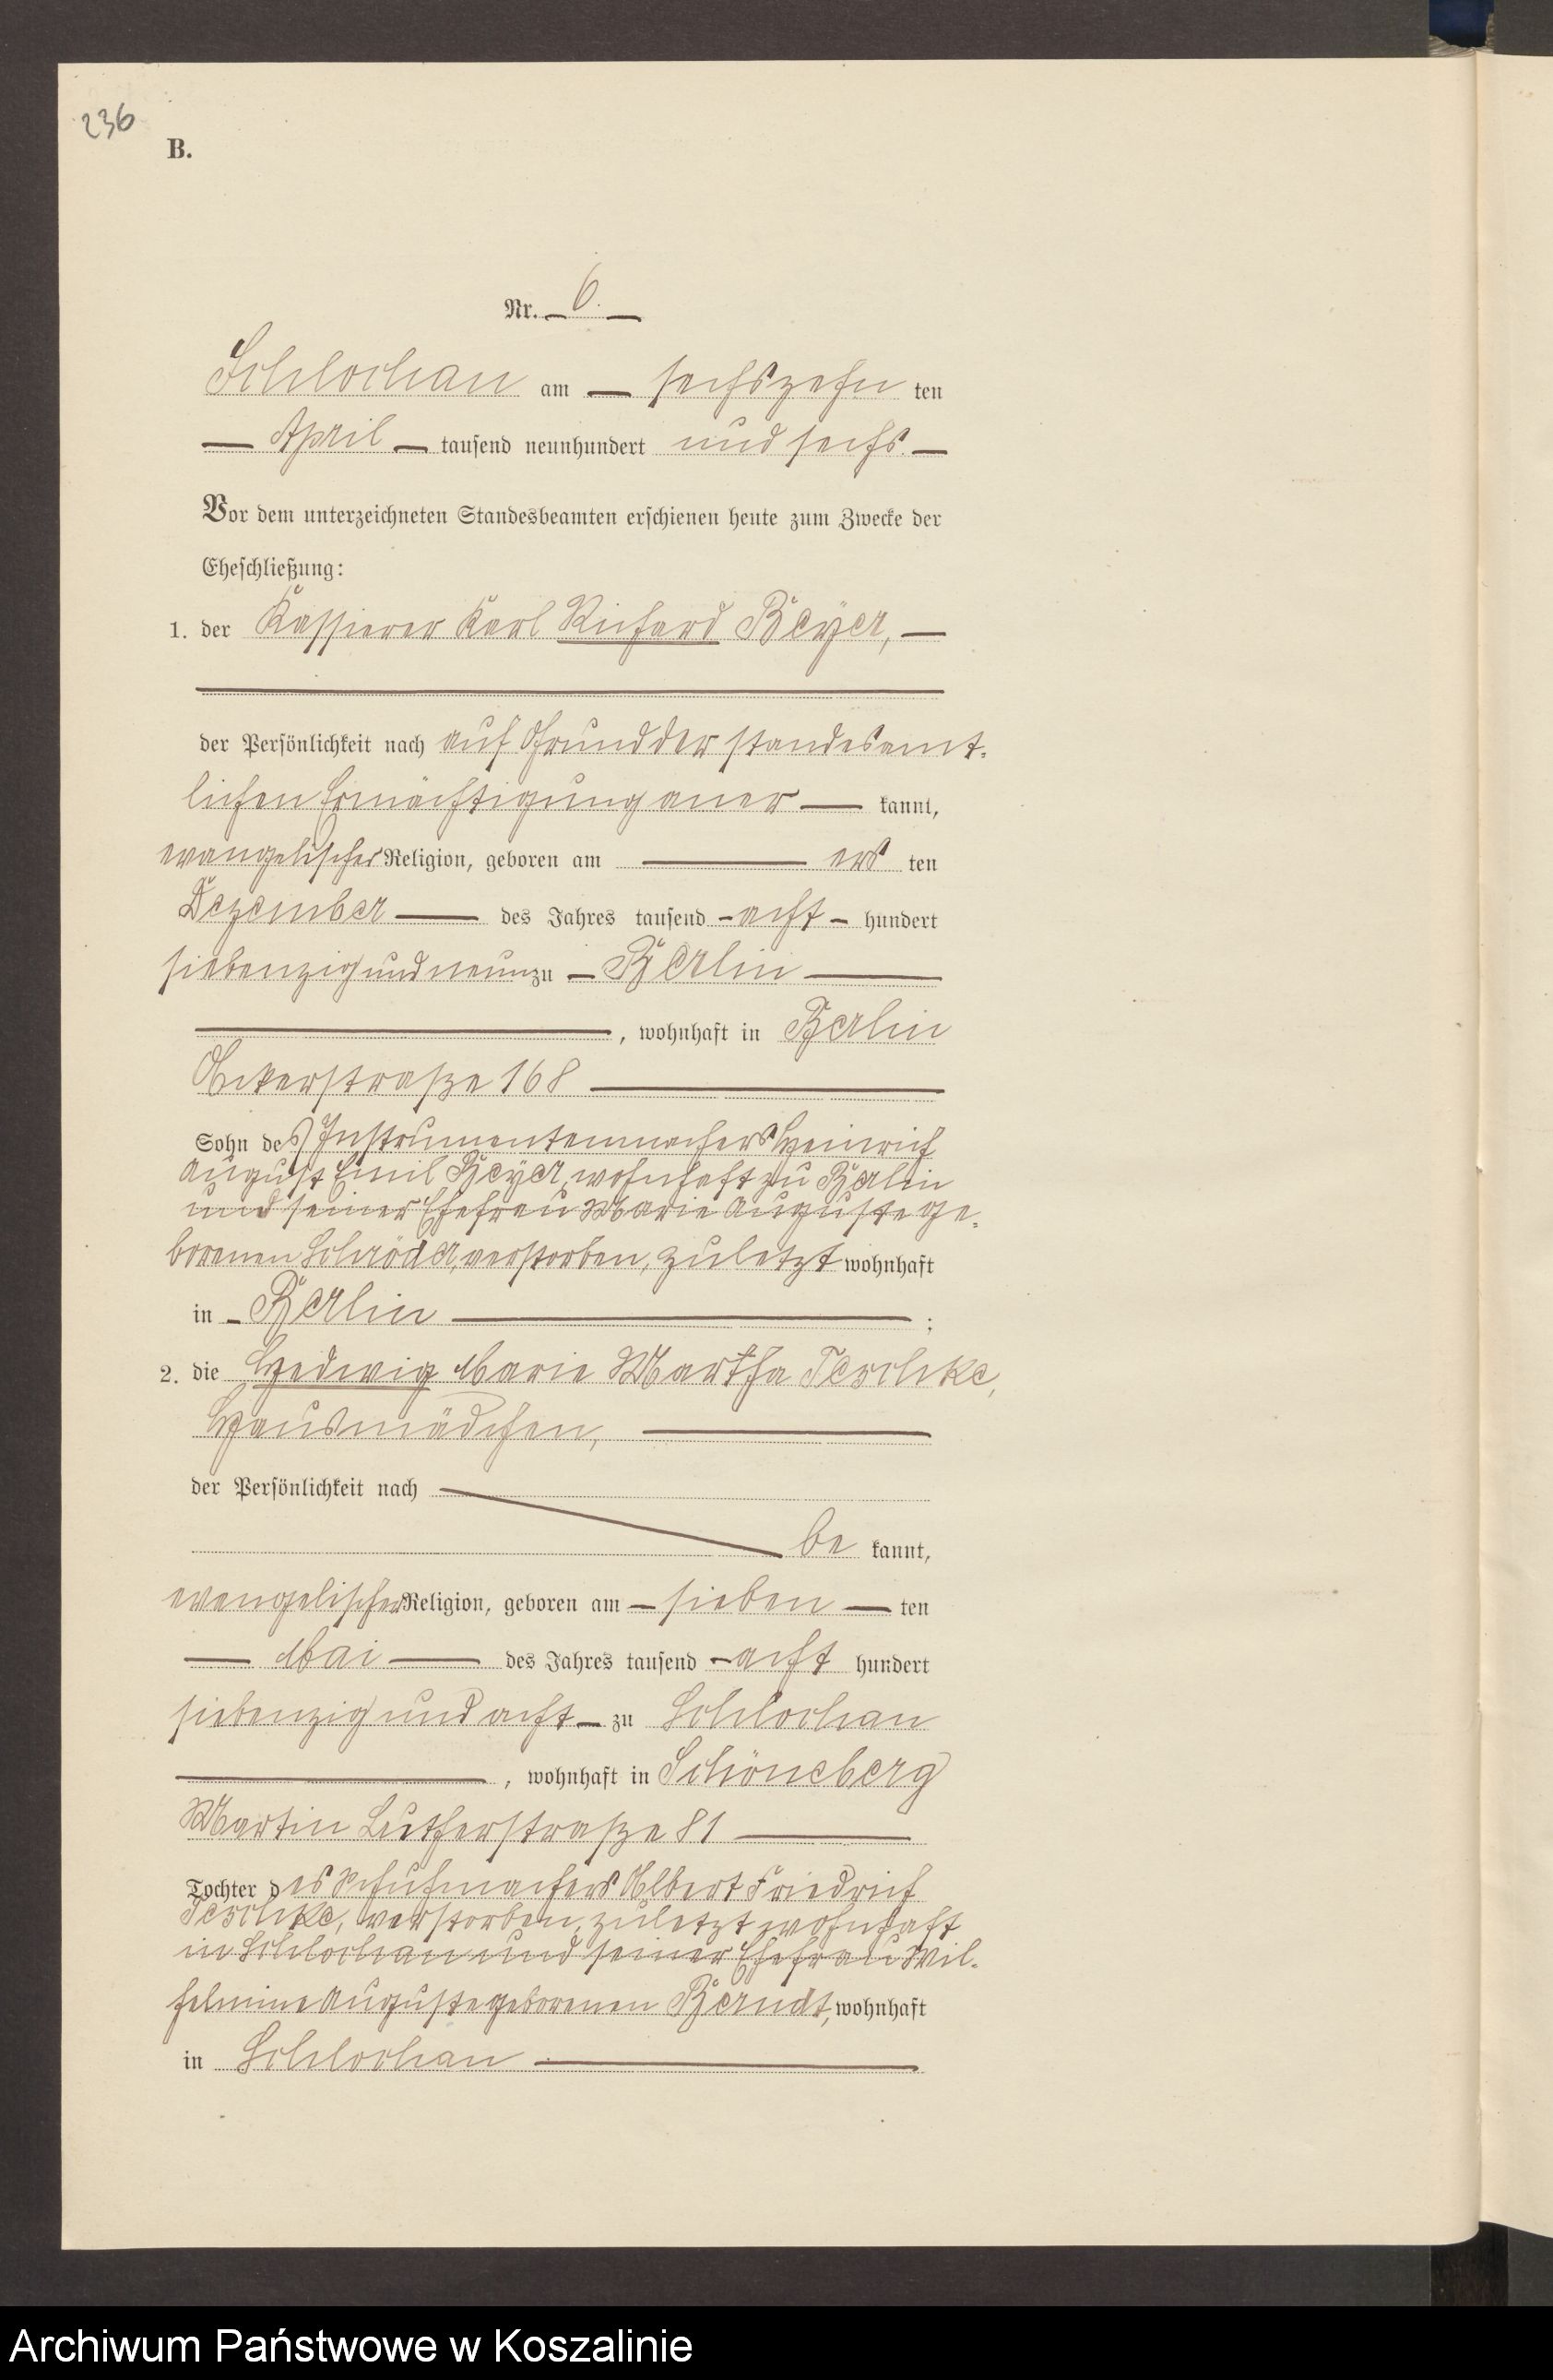 236
B.
Nr. 6.
Schlochau am sechszehn ten
April tausend neunhundert und sechs.
Vor dem unterzeichneten Standesbeamten erschienen heute zum Zwecke der
Eheschließung:
1. der Kassierer Karl Richard Beyer,
der Persönlichkeit nach auf Grund der standesamt-
lichen Ermächtigung aner kannt,
evangelischer Religion, geboren am ers ten
Dezember des Jahres tausend acht hundert
siebenzig und neun zu Berlin
, wohnhaft in Berlin
Ackerstraße 168
Sohn des Instrumentenmachers Heinrich
August Emil Beyer, wohnhaft zu Berlin
und seiner Ehefrau Marie Auguste ge-
borenen Schröder, verstorben, zuletzt wohnhaft
in Berlin ;
2. die Hedwig Marie Martha Teschke,
Hausmädchen,
der Persönlichkeit nach
be kannt,
evangelischer Religion, geboren am sieben ten
Mai des Jahres tausend acht hundert
siebenzig und acht zu Schlochau
, wohnhaft in Schöneberg
Martin Lutherstraße 81
Tochter des Schuhmachers Albert Friedrich
Teschke, verstorben, zuletzt wohnhaft
in Schlochau und seiner Ehefrau Wil-
helmine Auguste geborenen Berndt, wohnhaft
in Schlochau
Archiwum Państwowe w Koszalinie